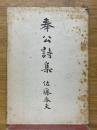 奉公詩集
佐藤春夫